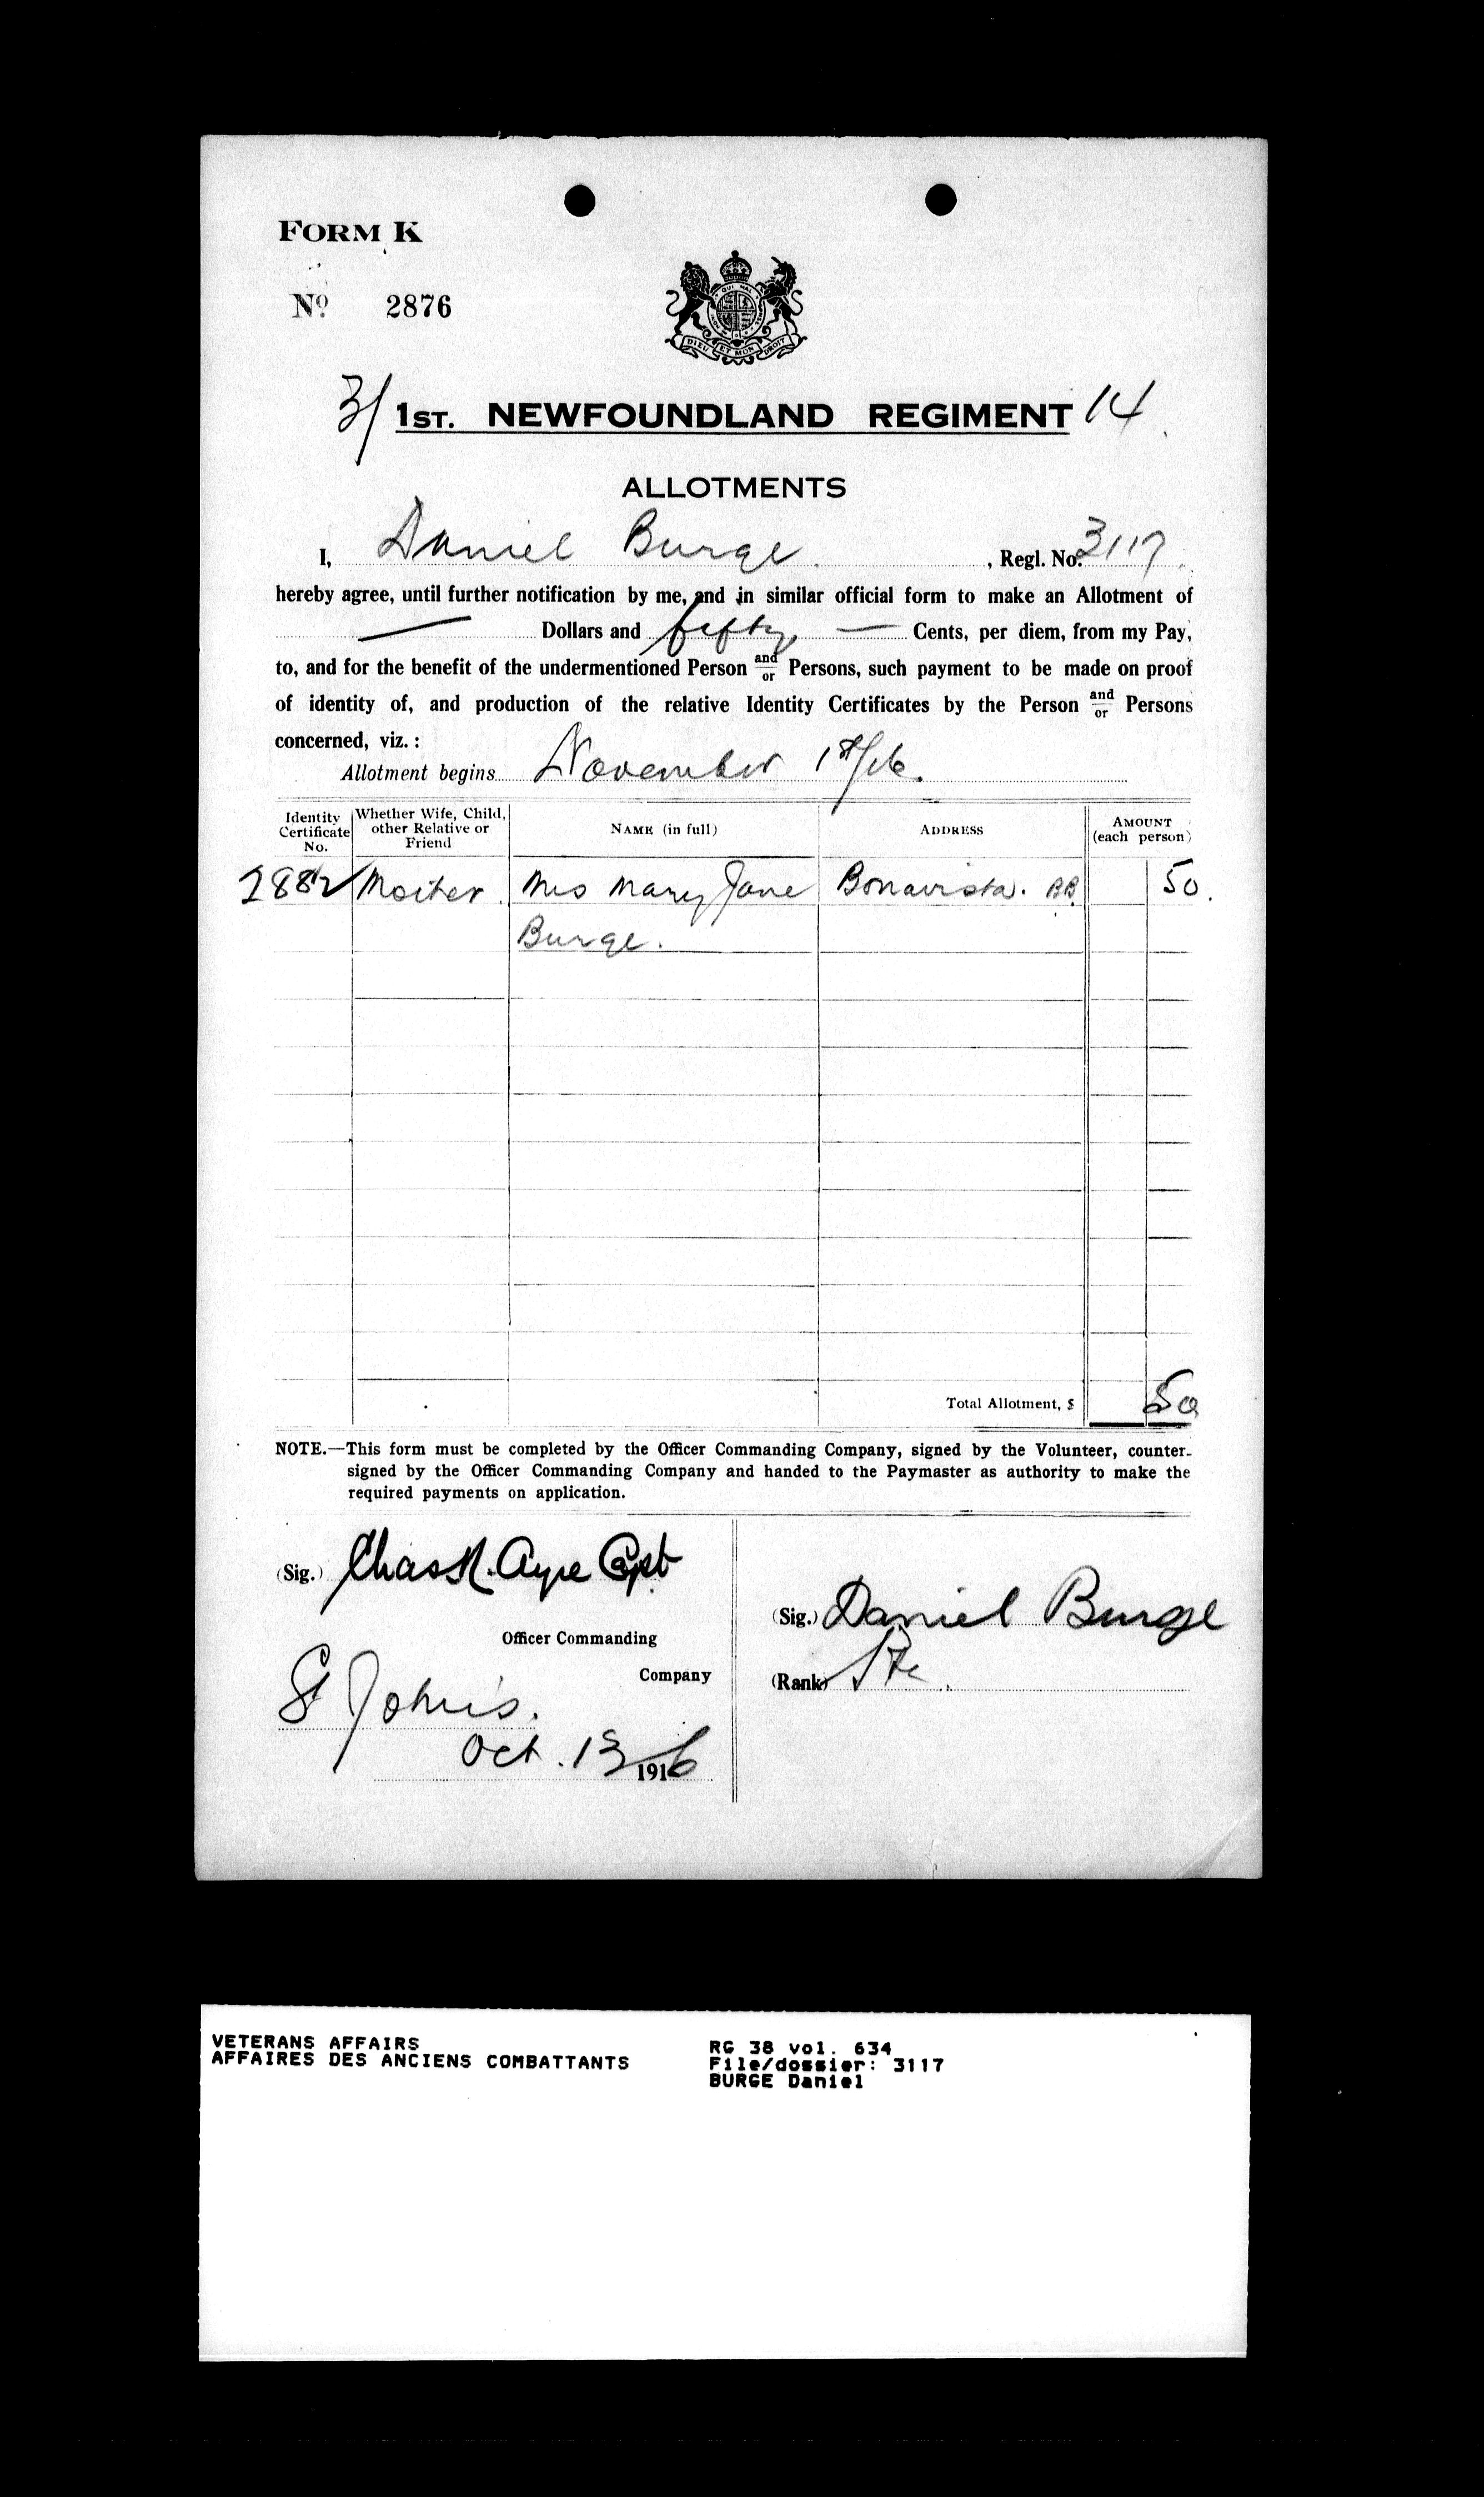 FORM K
No. 2876
DIEU ET MON DROIT
3/ 1ST. NEWFOUNDLAND REGIMENT 14
ALLOTMENTS
I, Daniel Burge , Regl. No. 3117
hereby agree, until further notification by me, and in similar official form to make an Allotment of
— Dollars and fifty — Cents, per diem, from my Pay,
to, and for the benefit of the undermentioned Person and/or Persons, such payment to be made on proof
of identity of, and production of the relative Identity Certificates by the Person and/or Persons
concerned, viz. :
Allotment begins November 1st/16.
Identity Certificate No. Whether Wife, Child, other Relative or Friend NAME (in full) ADDRESS AMOUNT (each person)
2882 Mother. Mrs Mary Jane Bonavista. BB. 50.
Burge.
Total Allotment, $ 50
NOTE.—This form must be completed by the Officer Commanding Company, signed by the Volunteer, counter-
signed by the Officer Commanding Company and handed to the Paymaster as authority to make the
required payments on application.
(Sig.) Chas R. Ayre Capt
Officer Commanding
Company
St John's.
Oct. 13 1916
(Sig.) Daniel Burge
(Rank) Pte.
VETERANS AFFAIRS
AFFAIRES DES ANCIENS COMBATTANTS
RG 38 vol. 634
File/dossier: 3117
BURGE Daniel